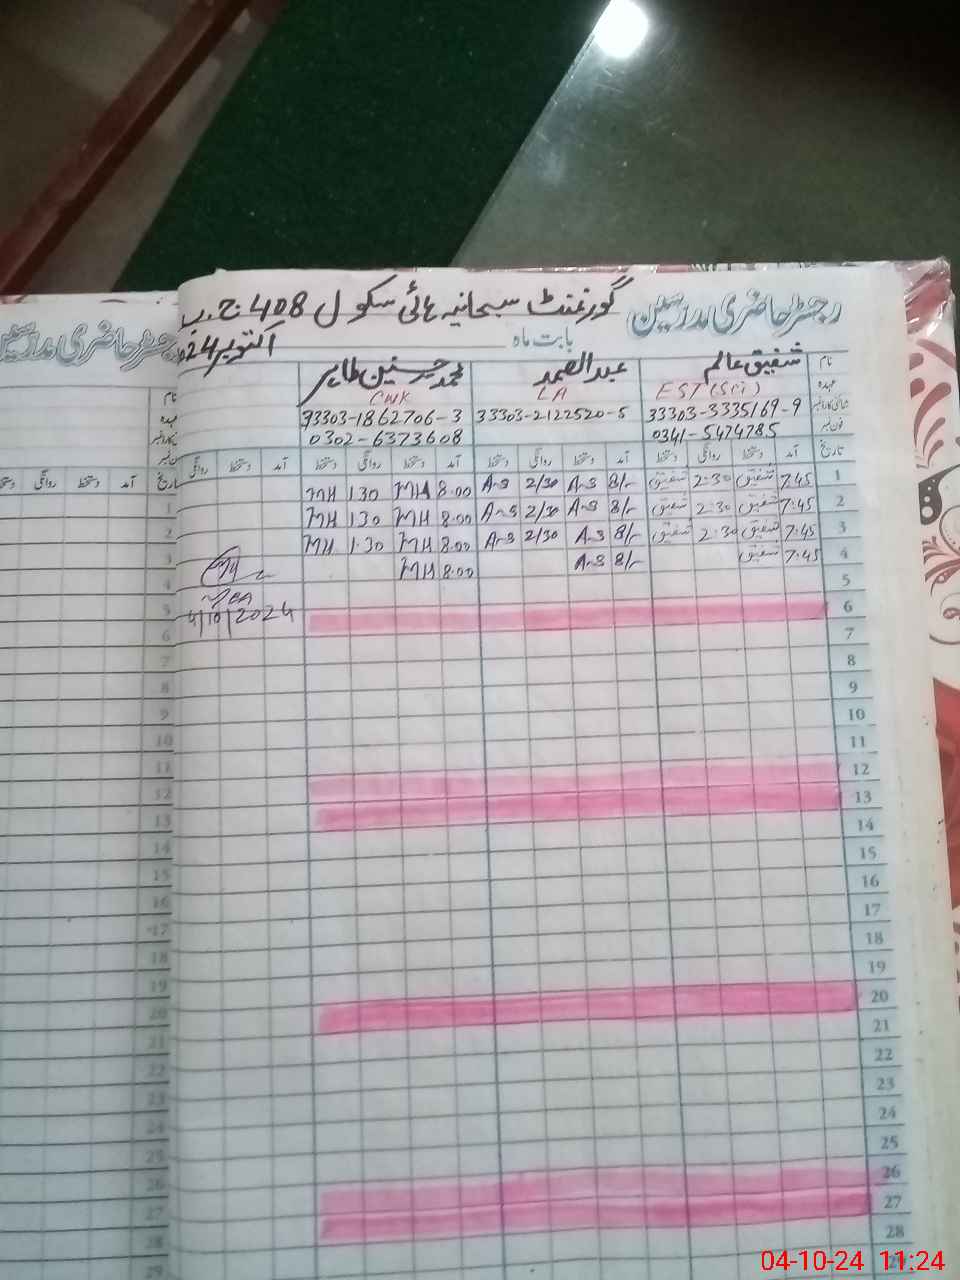 رجسٹر حاضری مدرسین گورنمنٹ سبحانیہ ہائی سکول 408 ج.ب
بابت ماہ اکتوبر 2024
نام شفیق عالم عبدالصمد محمد حسنین طاہر
عہدہ EST (Sci) LA CWK
33303-3335169-9 33303-2122520-5 33303-1862706-3
فون نمبر 0341-5474785 0302-6373608
تاریخ آمد دستخط روانگی دستخط آمد دستخط روانگی دستخط آمد دستخط روانگی دستخط آمد دستخط روانگی
1 7:45 شفیق 2:30 شفیق 8/- A-S 2/30 A-S 8:00 MH 1:30 MH
2 7:45 شفیق 2:30 شفیق 8/- A-S 2/30 A-S 8:00 MH 1:30 MH
3 7:45 شفیق 2:30 شفیق 8/- A-S 2/30 A-S 8:00 MH 1:30 MH
4 7:45 شفیق 8/- A-S 8:00 MH
5
6
4/10/2024
7
8
9
10
11
12
13
14
15
16
17
18
19
20
21
22
23
24
25
26
27
28
29
رجسٹر حاضری مدرسین
نام
عہدہ
تاریخ آمد دستخط روانگی
1
2
3
4
5
6
7
8
9
10
11
12
13
14
15
16
17
18
19
20
21
22
23
24
25
26
27
28
29
04-10-24 11:24